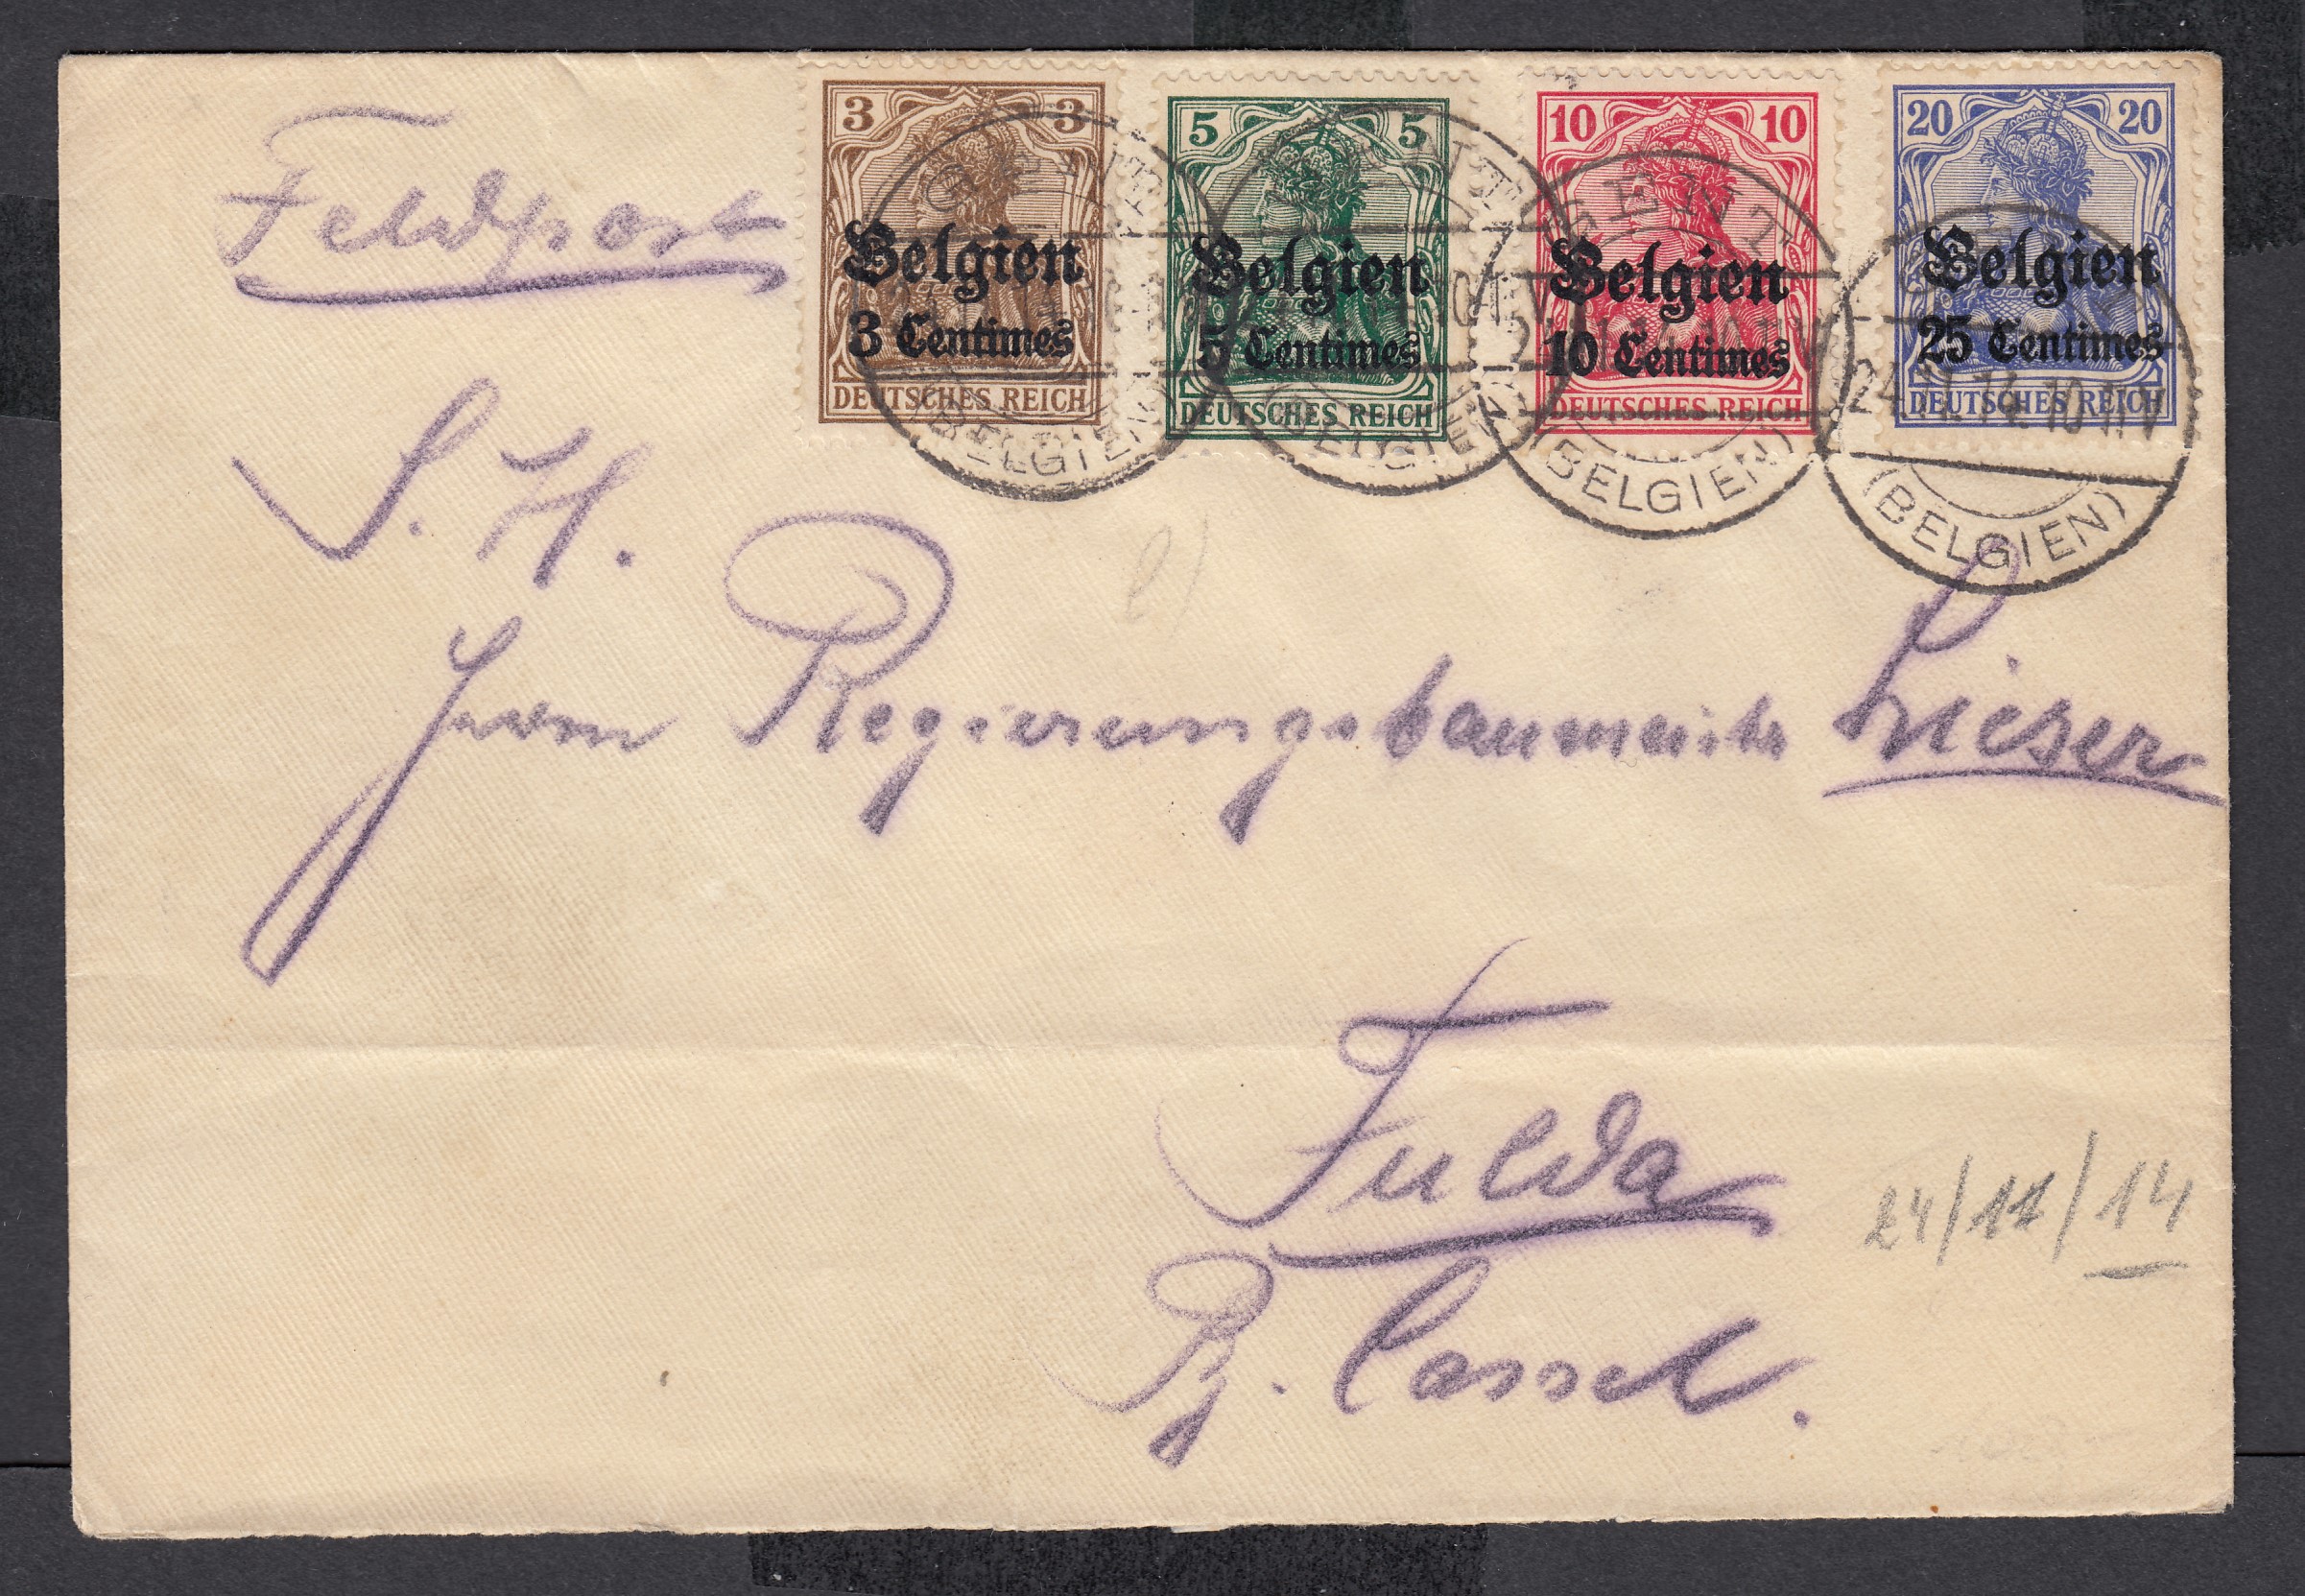 Feldpost
3 3
Belgien
3 Centimes
DEUTSCHES REICH
5 5
Belgien
5 Centimes
DEUTSCHES REICH
10 10
Belgien
10 Centimes
DEUTSCHES REICH
20 20
Belgien
25 Centimes
DEUTSCHES REICH
GENT
(BELGIEN)
GENT
(BELGIEN)
GENT
(BELGIEN)
24.11.14. 10-11V
(BELGIEN)
S. H.
Herrn Regierungsbaumeister Lieser
Fulda
24/11/14
Bz. Cassel.